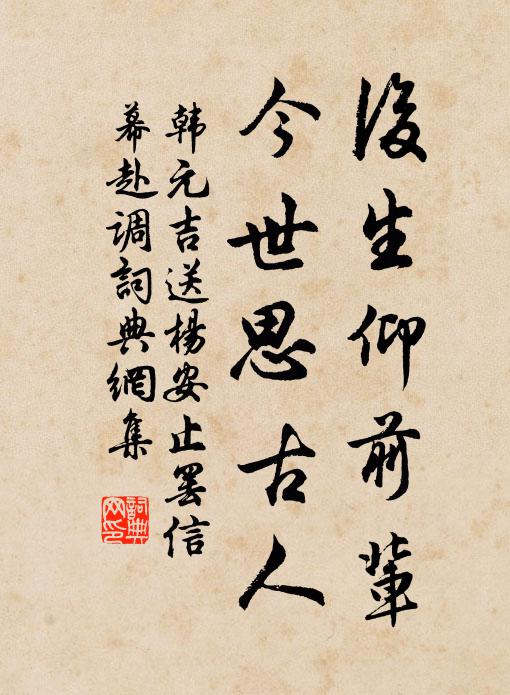 後生仰前輩
今世思古人
韩元吉送楊安止罢信
幕赴调詞典網集
詞典網印